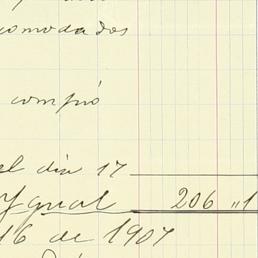 comodados
compró
el dia 17
Ygual 206 "1
16 de 1907